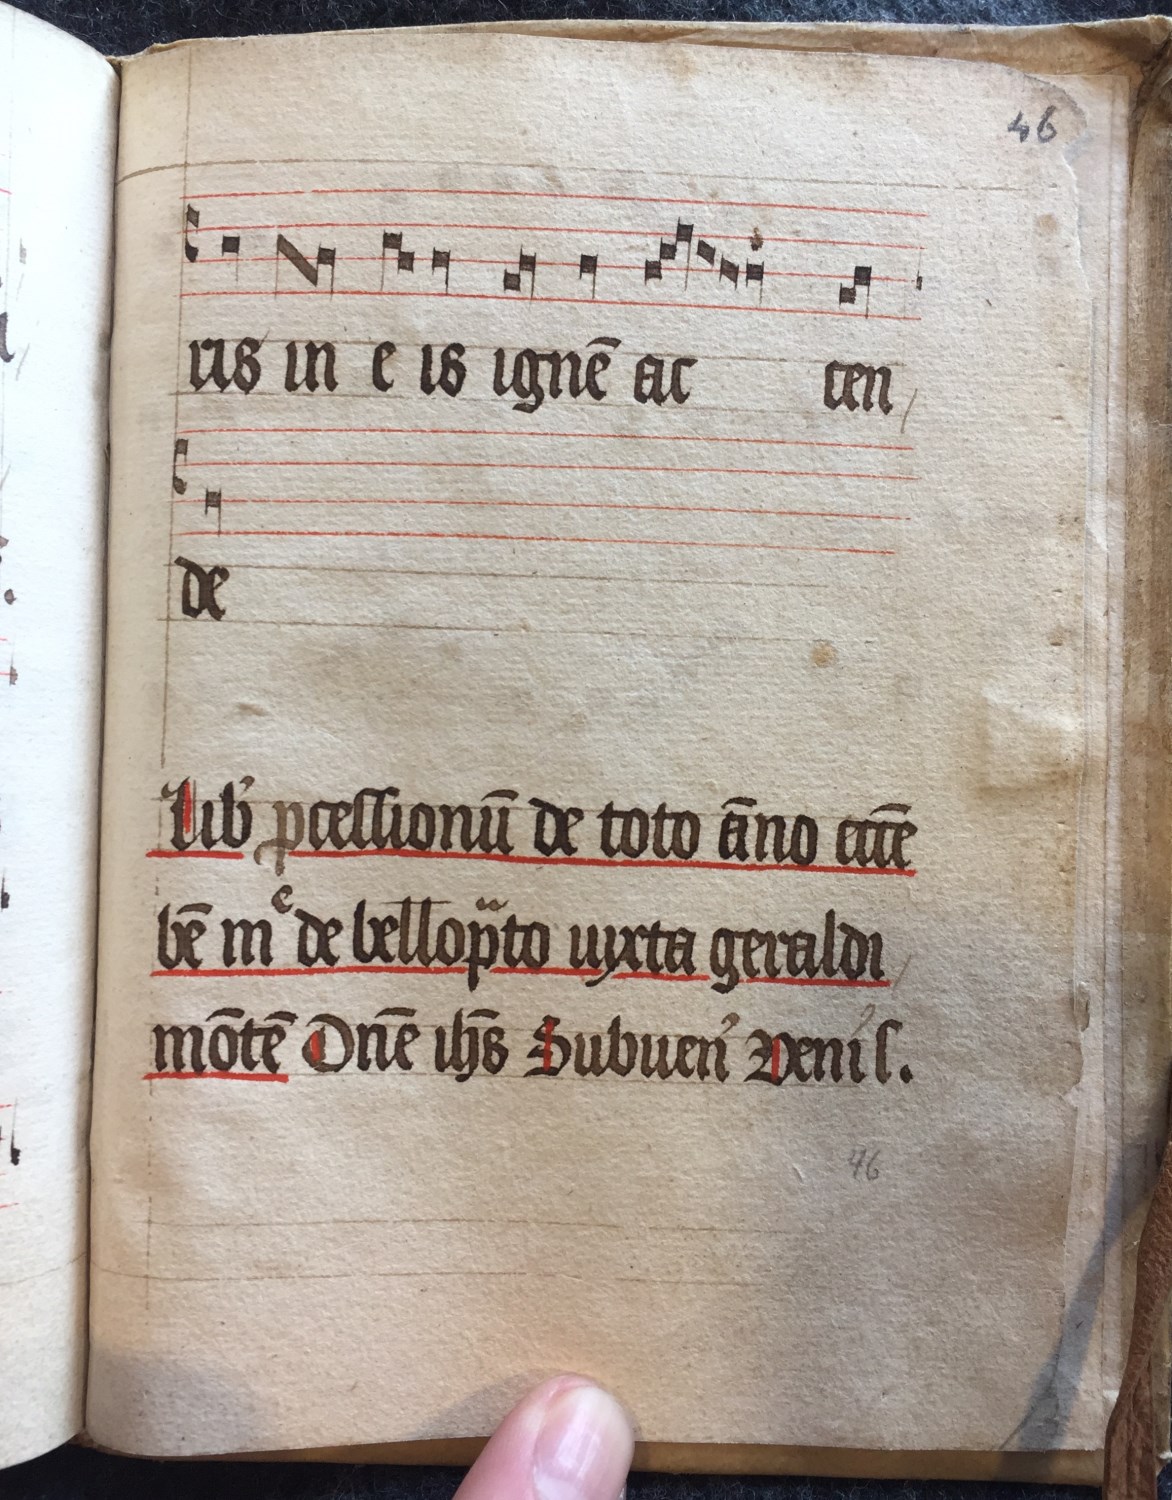 46
ris in e is ignē ac cen
de
Lib᷒ ꝓcessionū de toto āno eccē
bē mͤ de bellop̄to iuxta geraldi
mōtē Dn̄e ih̄s Subuen᷒ Veni s.
46